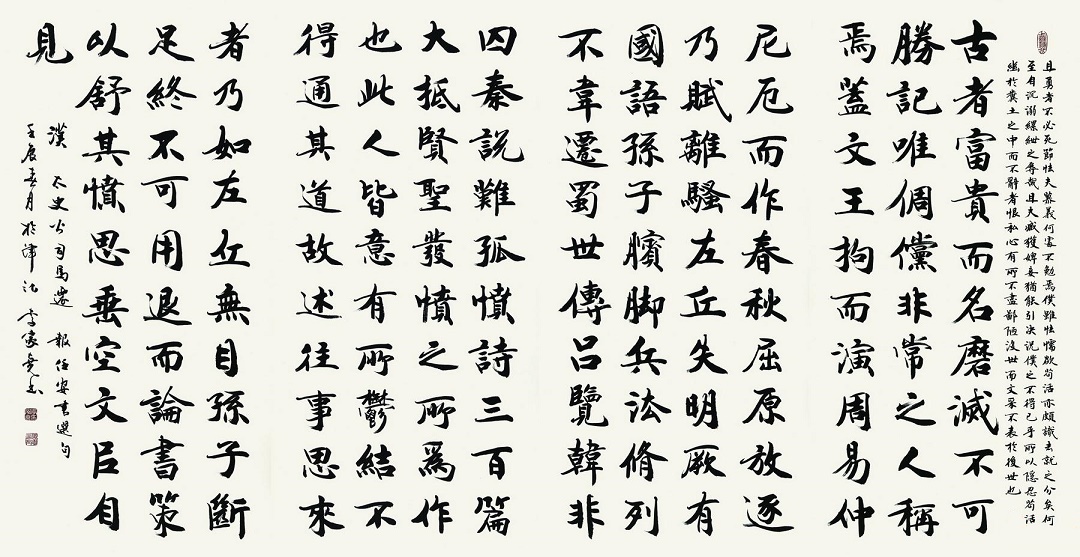 且勇者不必死節怯夫慕義何處不勉焉僕雖怯懦欲苟活亦頗識去就之分矣何
至自沉溺縲紲之辱哉且夫臧獲婢妾猶能引決況僕之不得已乎所以隱忍苟活
於糞土之中而不辭者恨私心有所不盡鄙陋没世而文采不表於後世也
古者富貴而名磨滅不可
勝記唯倜儻非常之人稱
焉蓋文王拘而演周易仲
尼厄而作春秋屈原放逐
乃賦離騷左丘失明厥有
國語孫子臏脚兵法脩列
不韋遷蜀世傳呂覽韓非
囚秦說難孤憤詩三百篇
大抵賢聖發憤之所爲作
也此人皆意有所鬱結不
得通其道故述往事思來
者乃如左丘無目孫子斷
足終不可用退而論書策
以舒其憤思垂空文以自
見
漢 太史公司馬遷 報任安書選句
壬辰春月於津沽 李家